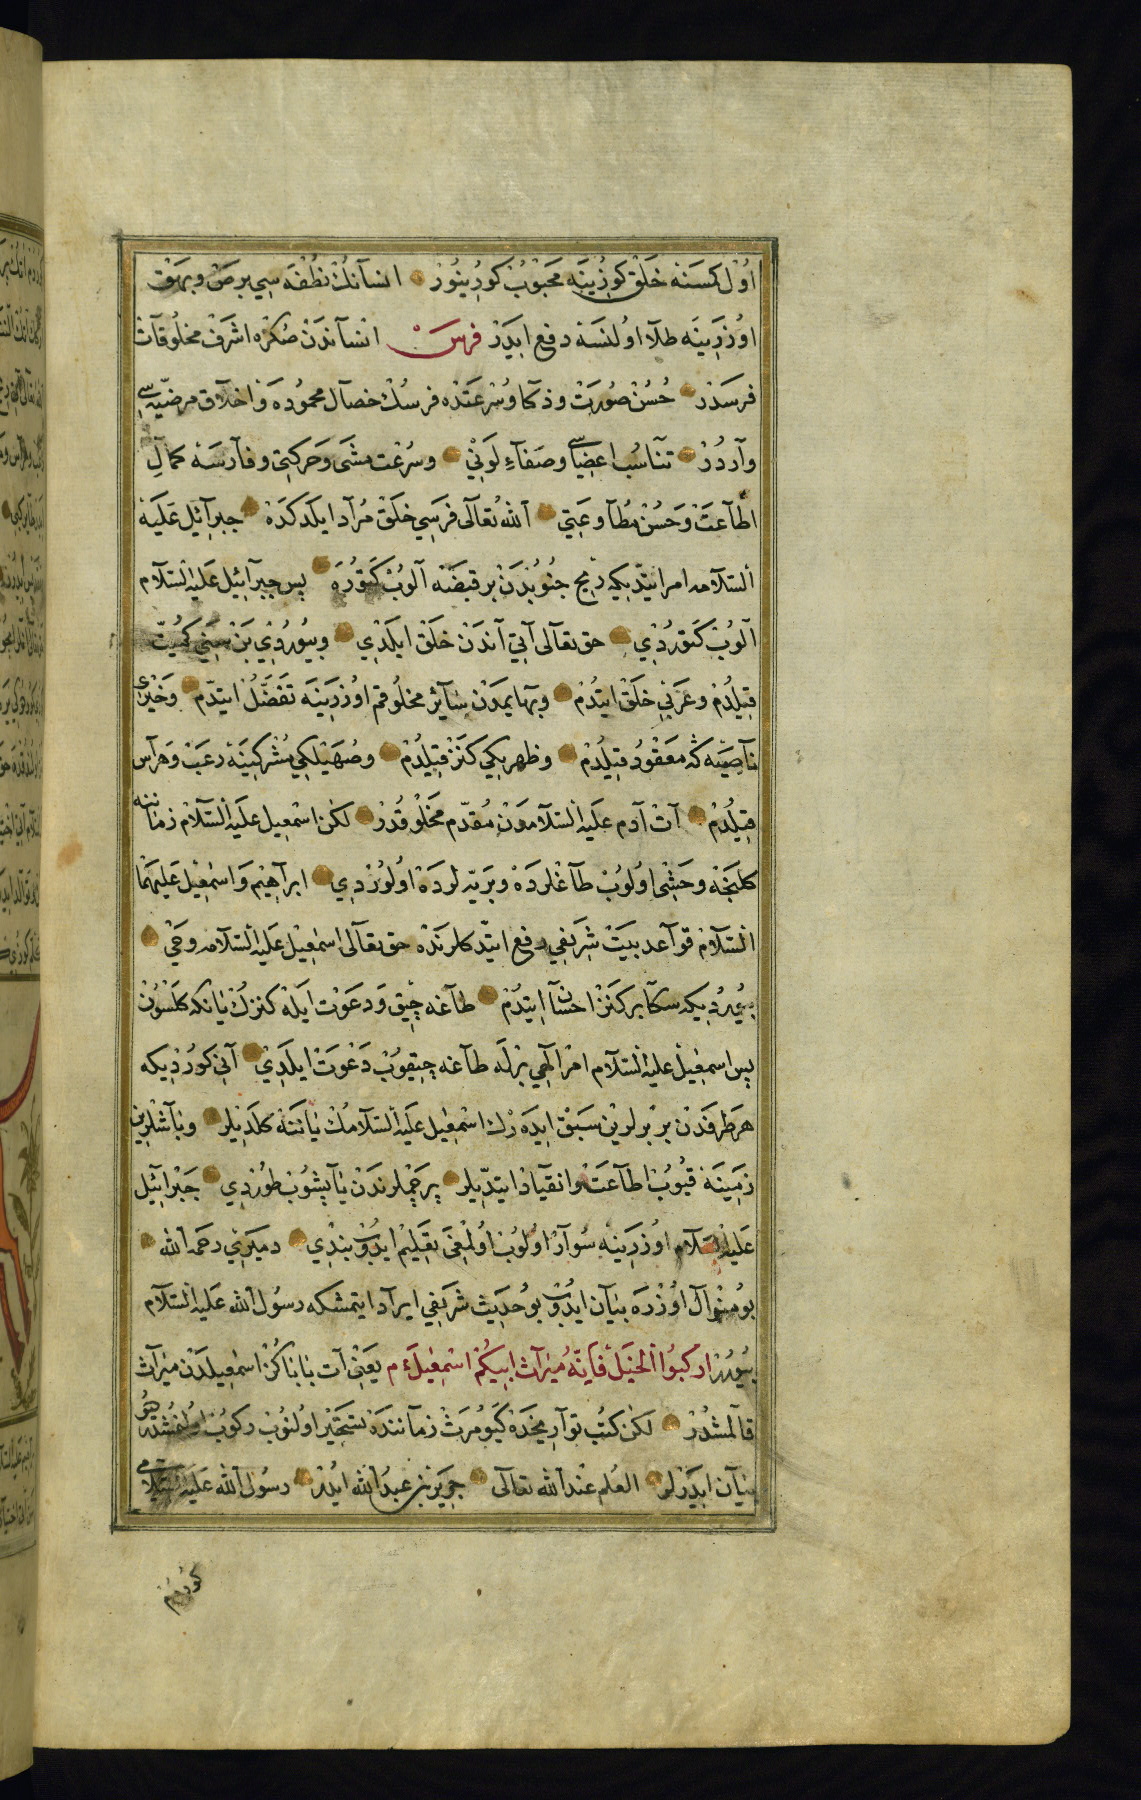 اول كسنه خلق كوزينه محبوب كورينور انسانك نطفه سي برص وبهق
اوزرينه طلا اولنسه دفع ايدر فرس انساندن صكره اشرف مخلوقات
فرسدر حسن صورت وذكا وسرعتده فرسك خصال محموده واخلاق مرضيه سي
واردر تناسب اعضاسي وصفاء لوني وسرعت مشي وحركتي وفارسه كمال
اطاعت وحسن مطاوعتي الله تعالى فرسي خلق مراد ايلدكده جبرائيل عليه
السلامه امر ايتديكه ريح جنوبدن بر قبضه آلوب كتوره پس جبرائيل عليه السلام
آلوب كتوردي حق تعالى آتي آندن خلق ايلدي وبيوردي بن سني كميت
قيلدم وعربي خلق ايتدم وبهايمدن سائر مخلوقم اوزرينه تفضل ايتدم وخيري
ناصيه كه معقود قيلدم وظهريكي كنز قيلدم وصهيلكي مشركينه رعب وهراس
قيلدم آت آدم عليه السلامدن مقدم مخلوقدر لكن اسمعيل عليه السلام زماننه
كلنجه وحشي اولوب طاغلرده وبريه لرده اولوردي ابراهيم واسمعيل عليهما
السلام قواعد بيت شريفي رفع ايتدكلرنده حق تعالى اسمعيل عليه السلامه وحي
بيورديكه سكا بر كنز احسان ايتدم طاغه چيق ودعوت ايله كنزك يانكه كلسون
پس اسمعيل عليه السلام امر الهي برله طاغه چيقوب دعوت ايلدي آني كورديكه
هر طرفدن بر برلرين سبق ايده رك اسمعيل عليه السلامك ياننه كلديلر وباشلرين
زمينه قيوب اطاعت وانقياد ايتديلر پرچملرندن ياپشوب طوردي جبرائيل
عليه السلام اوزرينه سوار اولوب اولمغي تعليم ايدوب بندي دميري رحمه الله
بو منوال اوزره بيان ايدوب بو حديث شريفي ايراد ايتمشكه رسول الله عليه السلام
بيورر اركبوا الخيل فانه ميراث ابيكم اسمعيل م يعني آت بابا كز اسمعيلدن ميراث
قالمشدر لكن كتب تواريخده كيومرث زماننده تسخير اولنوب ركوب اولنمشدر هو
بيان ايدرلر العلم عند الله تعالى جرير بن عبد الله ايدر رسول الله عليه السلامي
كوردم